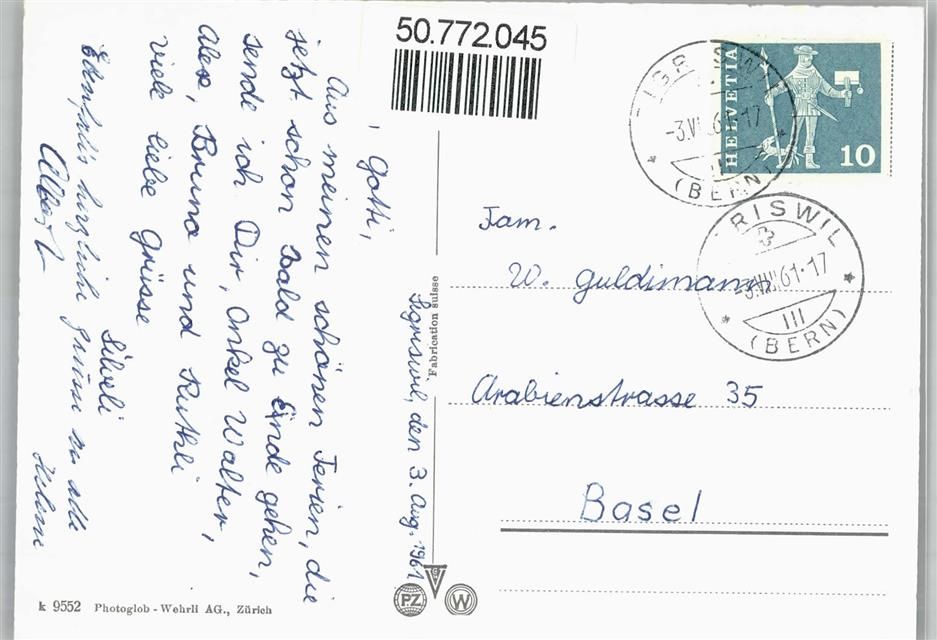 50.772.045
HELVETIA
10
SIGRISWIL
-3.VIII.61-17
III
(BERN)
SIGRISWIL
-3.VIII.61-17
III
(BERN)
Sigriswil, den 3. Aug. 1961
Gotti,
Aus meinen schönen Ferien, die
jetzt schon bald zu Ende gehen,
sende ich Dir, Onkel Walter,
Alex, Bruno und Ruthli
viele liebe Grüsse
Silveli
Ebenfalls herzliche Grüsse an alle
Albert Helene
Fam.
W. Guldimann
Arabienstrasse 35
Basel
Fabrication suisse
k 9552 Photoglob - Wehrli AG., Zürich
PZ
W